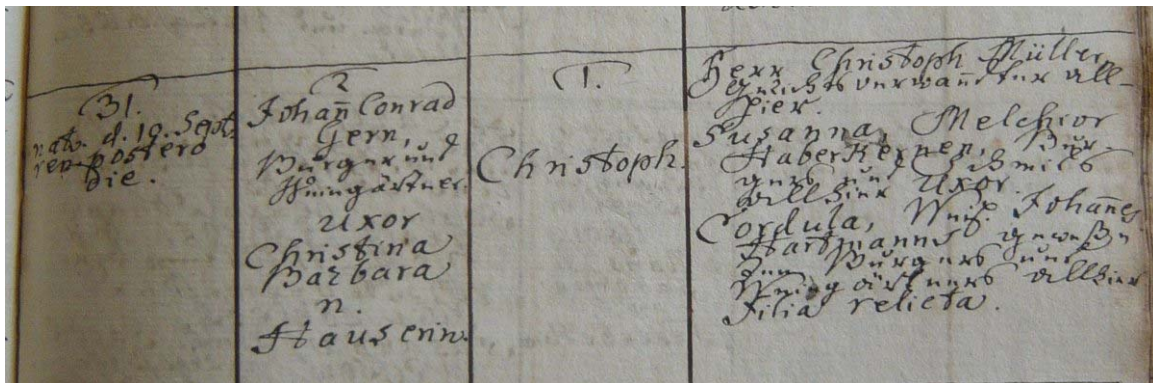 31.
nat. d. 19. Sept.
ren. postero
die.
2
Johañ Conrad
Gern,
Burger und
Weingärtner.
Uxor
Christina
Barbara
n.
Hauserin.
1.
Christoph.
Herr Christoph Müller,
Gerichtsverwañter all-
hier.
Susanna, Melchior
Haberkernen, Bur-
gers und Schmids
allhier Uxor.
Cordula, Weyl. Johañes
Hartmanns geweße
nen Burgers und
Weingärtners allhier
Filia relicta.